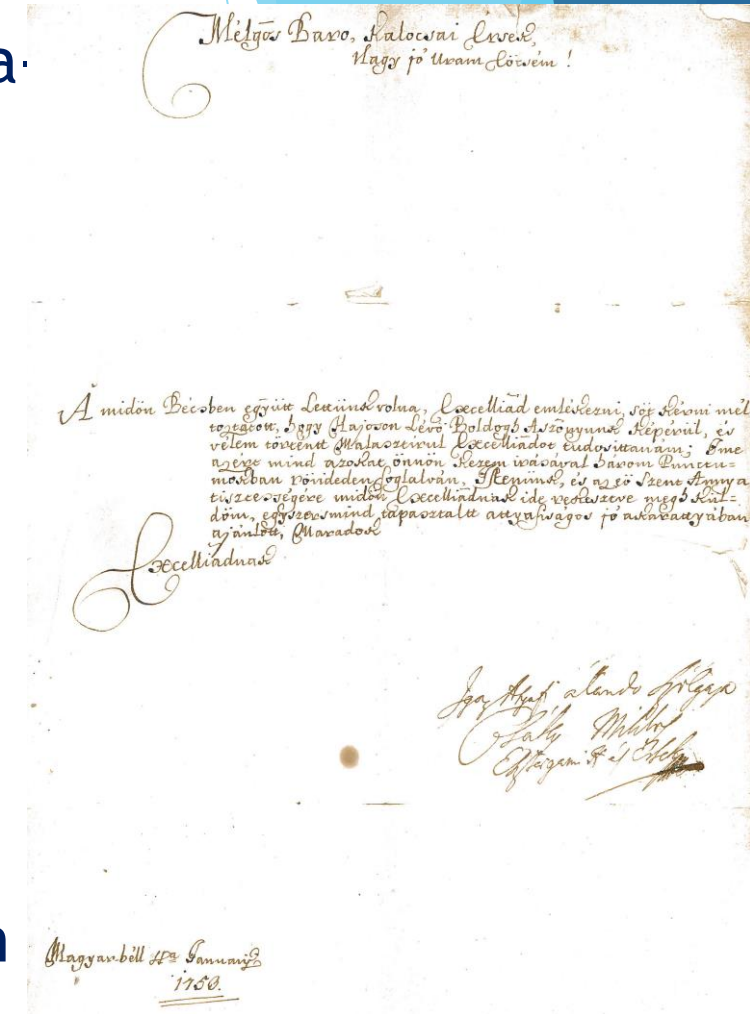 a
Mélgõs Baro, Kalocsai Érsek,
Nagy jó Uram Öcsém!
A midőn Bécsben együtt Lettünk volna, Excelliád emlékezni, sőt kérni mél
tóztatott, hogy Hajoson Lévő Boldogh Aszonyunk Képérül, és
vélem történtt Malasztirul Excelliádot tudosittanám; Ime
azért mind azokat önnön kezem irásával három Punctu=
mokban röviden foglalván, Istenünk, és az ő Szent Annya
tiszességére midőn Excelliádnak ide rekesztve megh kül=
döm, egyszersmind tapasztaltt attyafiságos jó akarattyában
ajánlott, Maradok
Excelliádnak
Igaz Atyafi álando Szolgaja
Csaky Miklos
Esztergami és Érsek
Magyar-béll 4a January
1753.
n